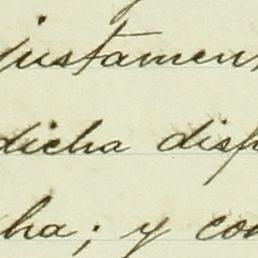 justamen
dicha disp
ha; y con